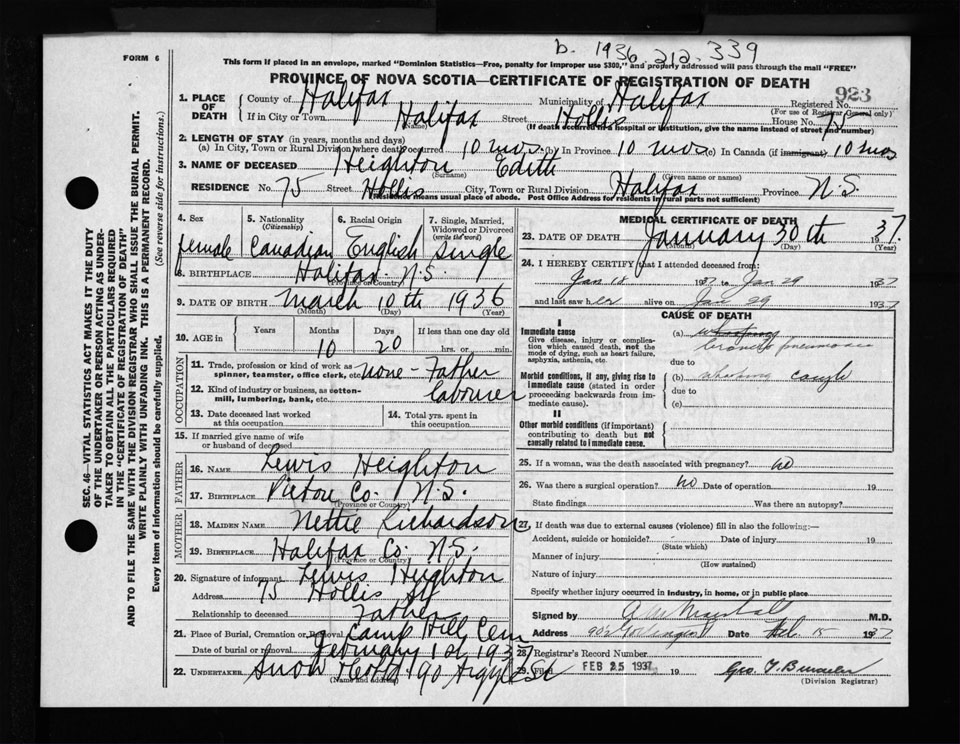 b. 1936.212.339
FORM 6
This form if placed in an envelope, marked "Dominion Statistics—Free, penalty for improper use $300," and properly addressed will pass through the mail "FREE"
PROVINCE OF NOVA SCOTIA—CERTIFICATE OF REGISTRATION OF DEATH
923
SEC. 46—VITAL STATISTICS ACT MAKES IT THE DUTY
OF THE UNDERTAKER OR PERSON ACTING AS UNDER-
TAKER TO OBTAIN ALL THE PARTICULARS REQUIRED
IN THE "CERTIFICATE OF REGISTRATION OF DEATH"
AND TO FILE THE SAME WITH THE DIVISION REGISTRAR WHO SHALL ISSUE THE BURIAL PERMIT.
WRITE PLAINLY WITH UNFADING INK. THIS IS A PERMANENT RECORD.
Every item of information should be carefully supplied. (See reverse side for instructions.)
1. PLACE OF DEATH County of Halifax Municipality of Halifax Registered No.
(For use of Registrar General only)
If in City or Town Halifax Street Hollis House No. 75
(Name) (If death occurred in a hospital or institution, give the name instead of street and number)
2. LENGTH OF STAY (in years, months and days)
(a) In City, Town or Rural Division where death occurred 10 mos (b) In Province 10 mos (c) In Canada (if immigrant) 10 mos
3. NAME OF DECEASED Heighton Edith
(Surname) (Given name or names)
RESIDENCE No. 75 Street Hollis City, Town or Rural Division Halifax Province N.S.
(Residence means usual place of abode. Post Office Address for residents in rural parts not sufficient)
4. Sex female
5. Nationality (Citizenship) Canadian
6. Racial Origin English
7. Single, Married, Widowed or Divorced (write the word) Single
8. BIRTHPLACE Halifax N.S.
(Province or Country)
9. DATE OF BIRTH March 10th 1936
(Month) (Day) (Year)
10. AGE in Years Months 10 Days 20 If less than one day old hrs. or min.
OCCUPATION
11. Trade, profession or kind of work as spinner, teamster, office clerk, etc. none - Father
12. Kind of industry or business, as cotton-mill, lumbering, bank, etc. labourer
13. Date deceased last worked at this occupation
14. Total yrs. spent in this occupation
15. If married give name of wife or husband of deceased
FATHER
16. NAME Lewis Heighton
17. BIRTHPLACE Pictou Co. N.S.
(Province or Country)
MOTHER
18. MAIDEN NAME Nettie Richardson
19. BIRTHPLACE Halifax Co. N.S.
(Province or Country)
20. Signature of informant Lewis Heighton
Address 75 Hollis St
Relationship to deceased Father
21. Place of Burial, Cremation or Removal Camp Hill Cem
Date of burial or removal February 1st 1937
22. UNDERTAKER Snow & Co Ltd 90 Argyle St
(Name and address)
MEDICAL CERTIFICATE OF DEATH
23. DATE OF DEATH January 30th 1937.
(Month) (Day) (Year)
24. I HEREBY CERTIFY that I attended deceased from:
Jan 18 1937 to Jan 29 1937
and last saw her alive on Jan 29 1937
CAUSE OF DEATH
I
Immediate cause
Give disease, injury or complication which caused death, not the mode of dying, such as heart failure, asphyxia, asthenia, etc.
(a) broncho pneumonia
due to
Morbid conditions, if any, giving rise to immediate cause (stated in order proceeding backwards from immediate cause).
(b) whooping cough
due to
(c)
II
Other morbid conditions (if important) contributing to death but not causally related to immediate cause.
25. If a woman, was the death associated with pregnancy? no
26. Was there a surgical operation? no Date of operation 19
State findings Was there an autopsy?
27. If death was due to external causes (violence) fill in also the following:—
Accident, suicide or homicide? Date of injury 19
(State which)
Manner of injury
(How sustained)
Nature of injury
Specify whether injury occurred in industry, in home, or in public place
Signed by Marshall M.D.
Address Date Feb. 15 1937
28. Registrar's Record Number
29. Filed FEB 25 1937 19
(Division Registrar)